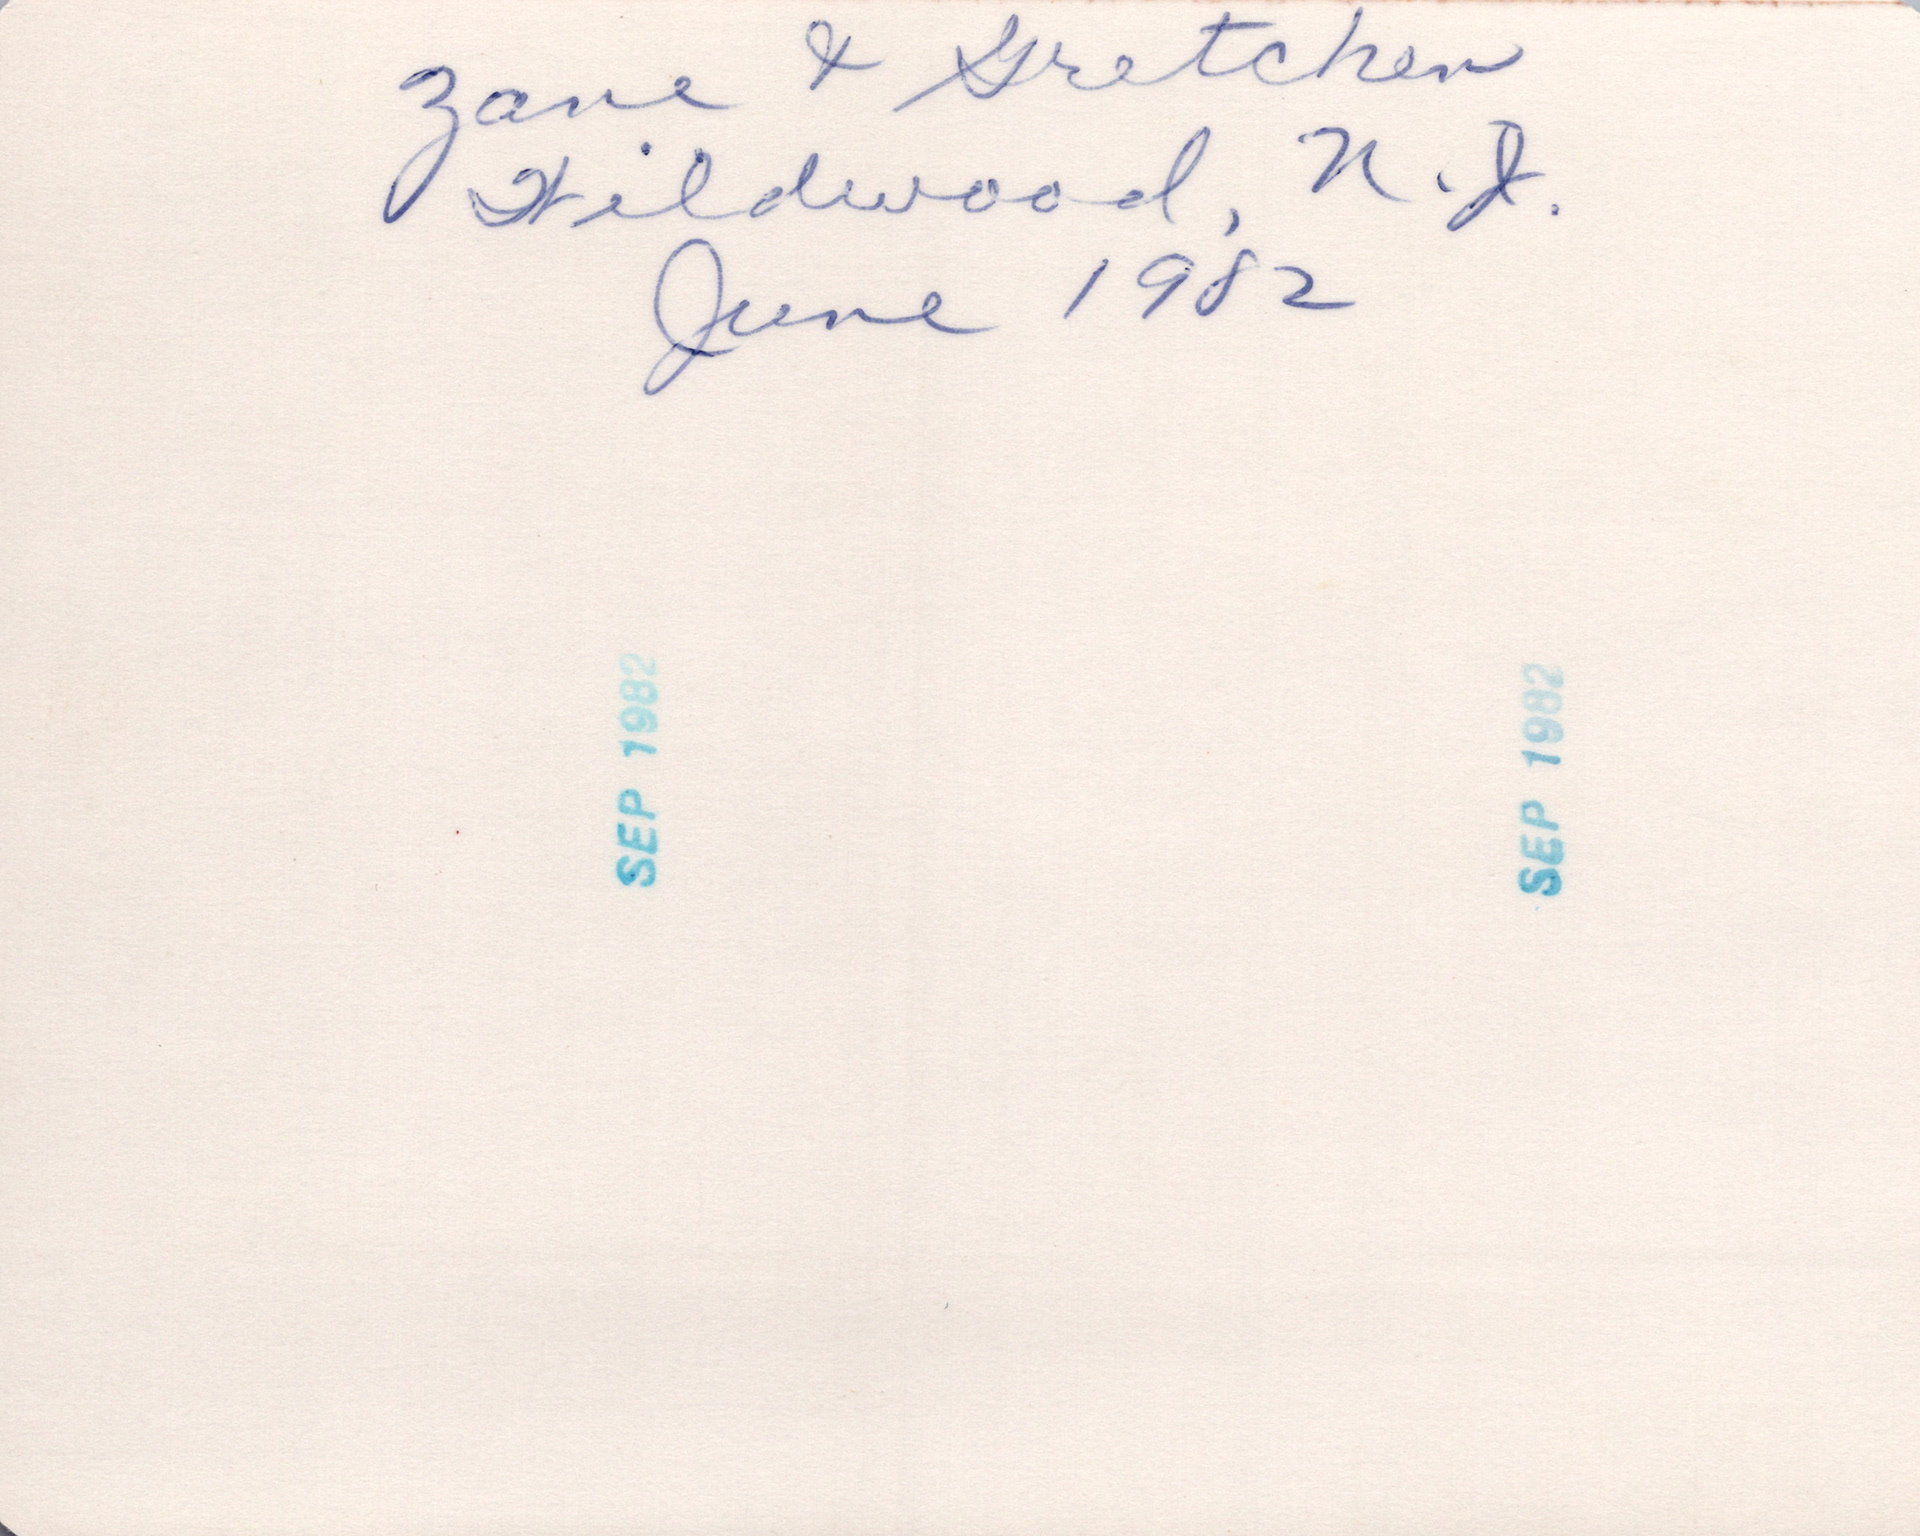 Zane & Gretchen
Wildwood, N.J.
June 1982
SEP 1982
SEP 1982